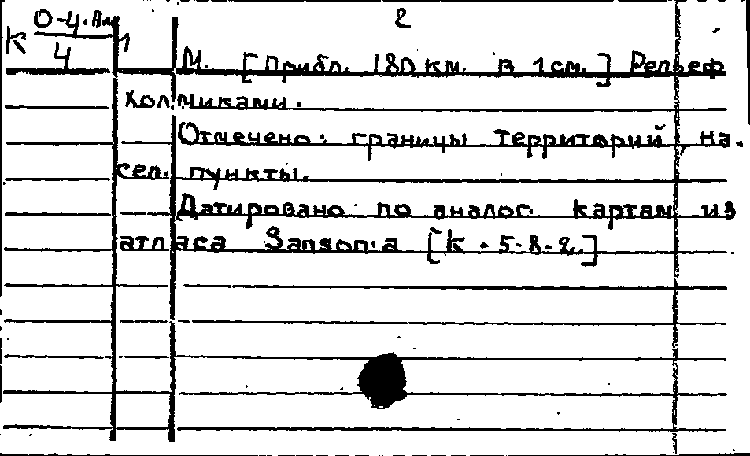 2
К О-Ч.Ам
4
М. [Прибл. 180 км. в 1 см.] Рельеф
холмиками.
Отмечено: границы территорий, на-
сел. пункты.
Датировано по аналог. картам из
атласа Sanson'а [К . 5-8-2.]